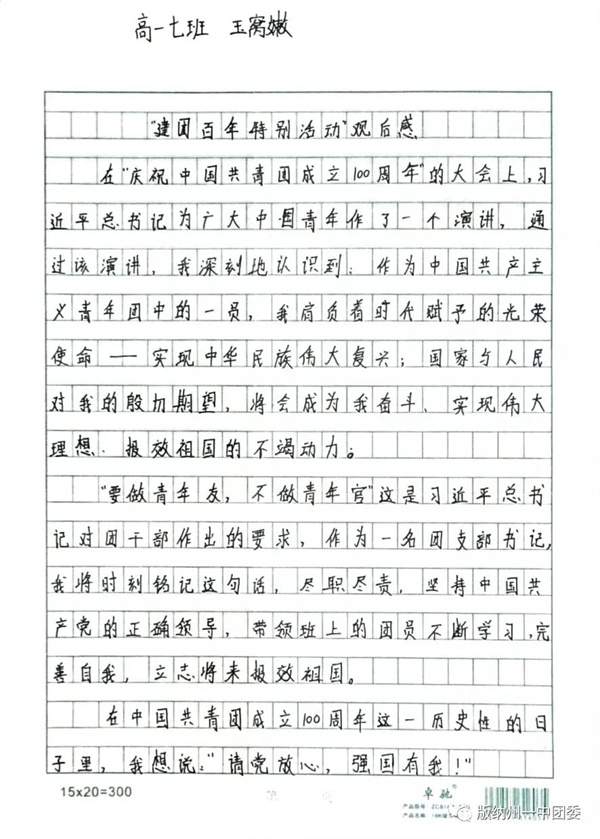 高一七班 玉窝嫩
"建团百年特别活动"观后感
在"庆祝中国共青团成立100周年"的大会上,习
近平总书记为广大中国青年作了一个演讲,通
过该演讲,我深刻地认识到:作为中国共产主
义青年团中的一员,我肩负着时代赋予的光荣
使命——实现中华民族伟大复兴;国家与人民
对我的殷切期望,将会成为我奋斗、实现伟大
理想、报效祖国的不竭动力。
"要做青年友,不做青年官"这是习近平总书
记对团干部作出的要求,作为一名团支部书记,
我将时刻铭记这句话,尽职尽责,坚持中国共
产党的正确领导,带领班上的团员不断学习,完
善自我,立志将来报效祖国。
在中国共青团成立100周年这一历史性的日
子里,我想说:"请党放心,强国有我!"
15x20=300
卓越
版纳州一中团委